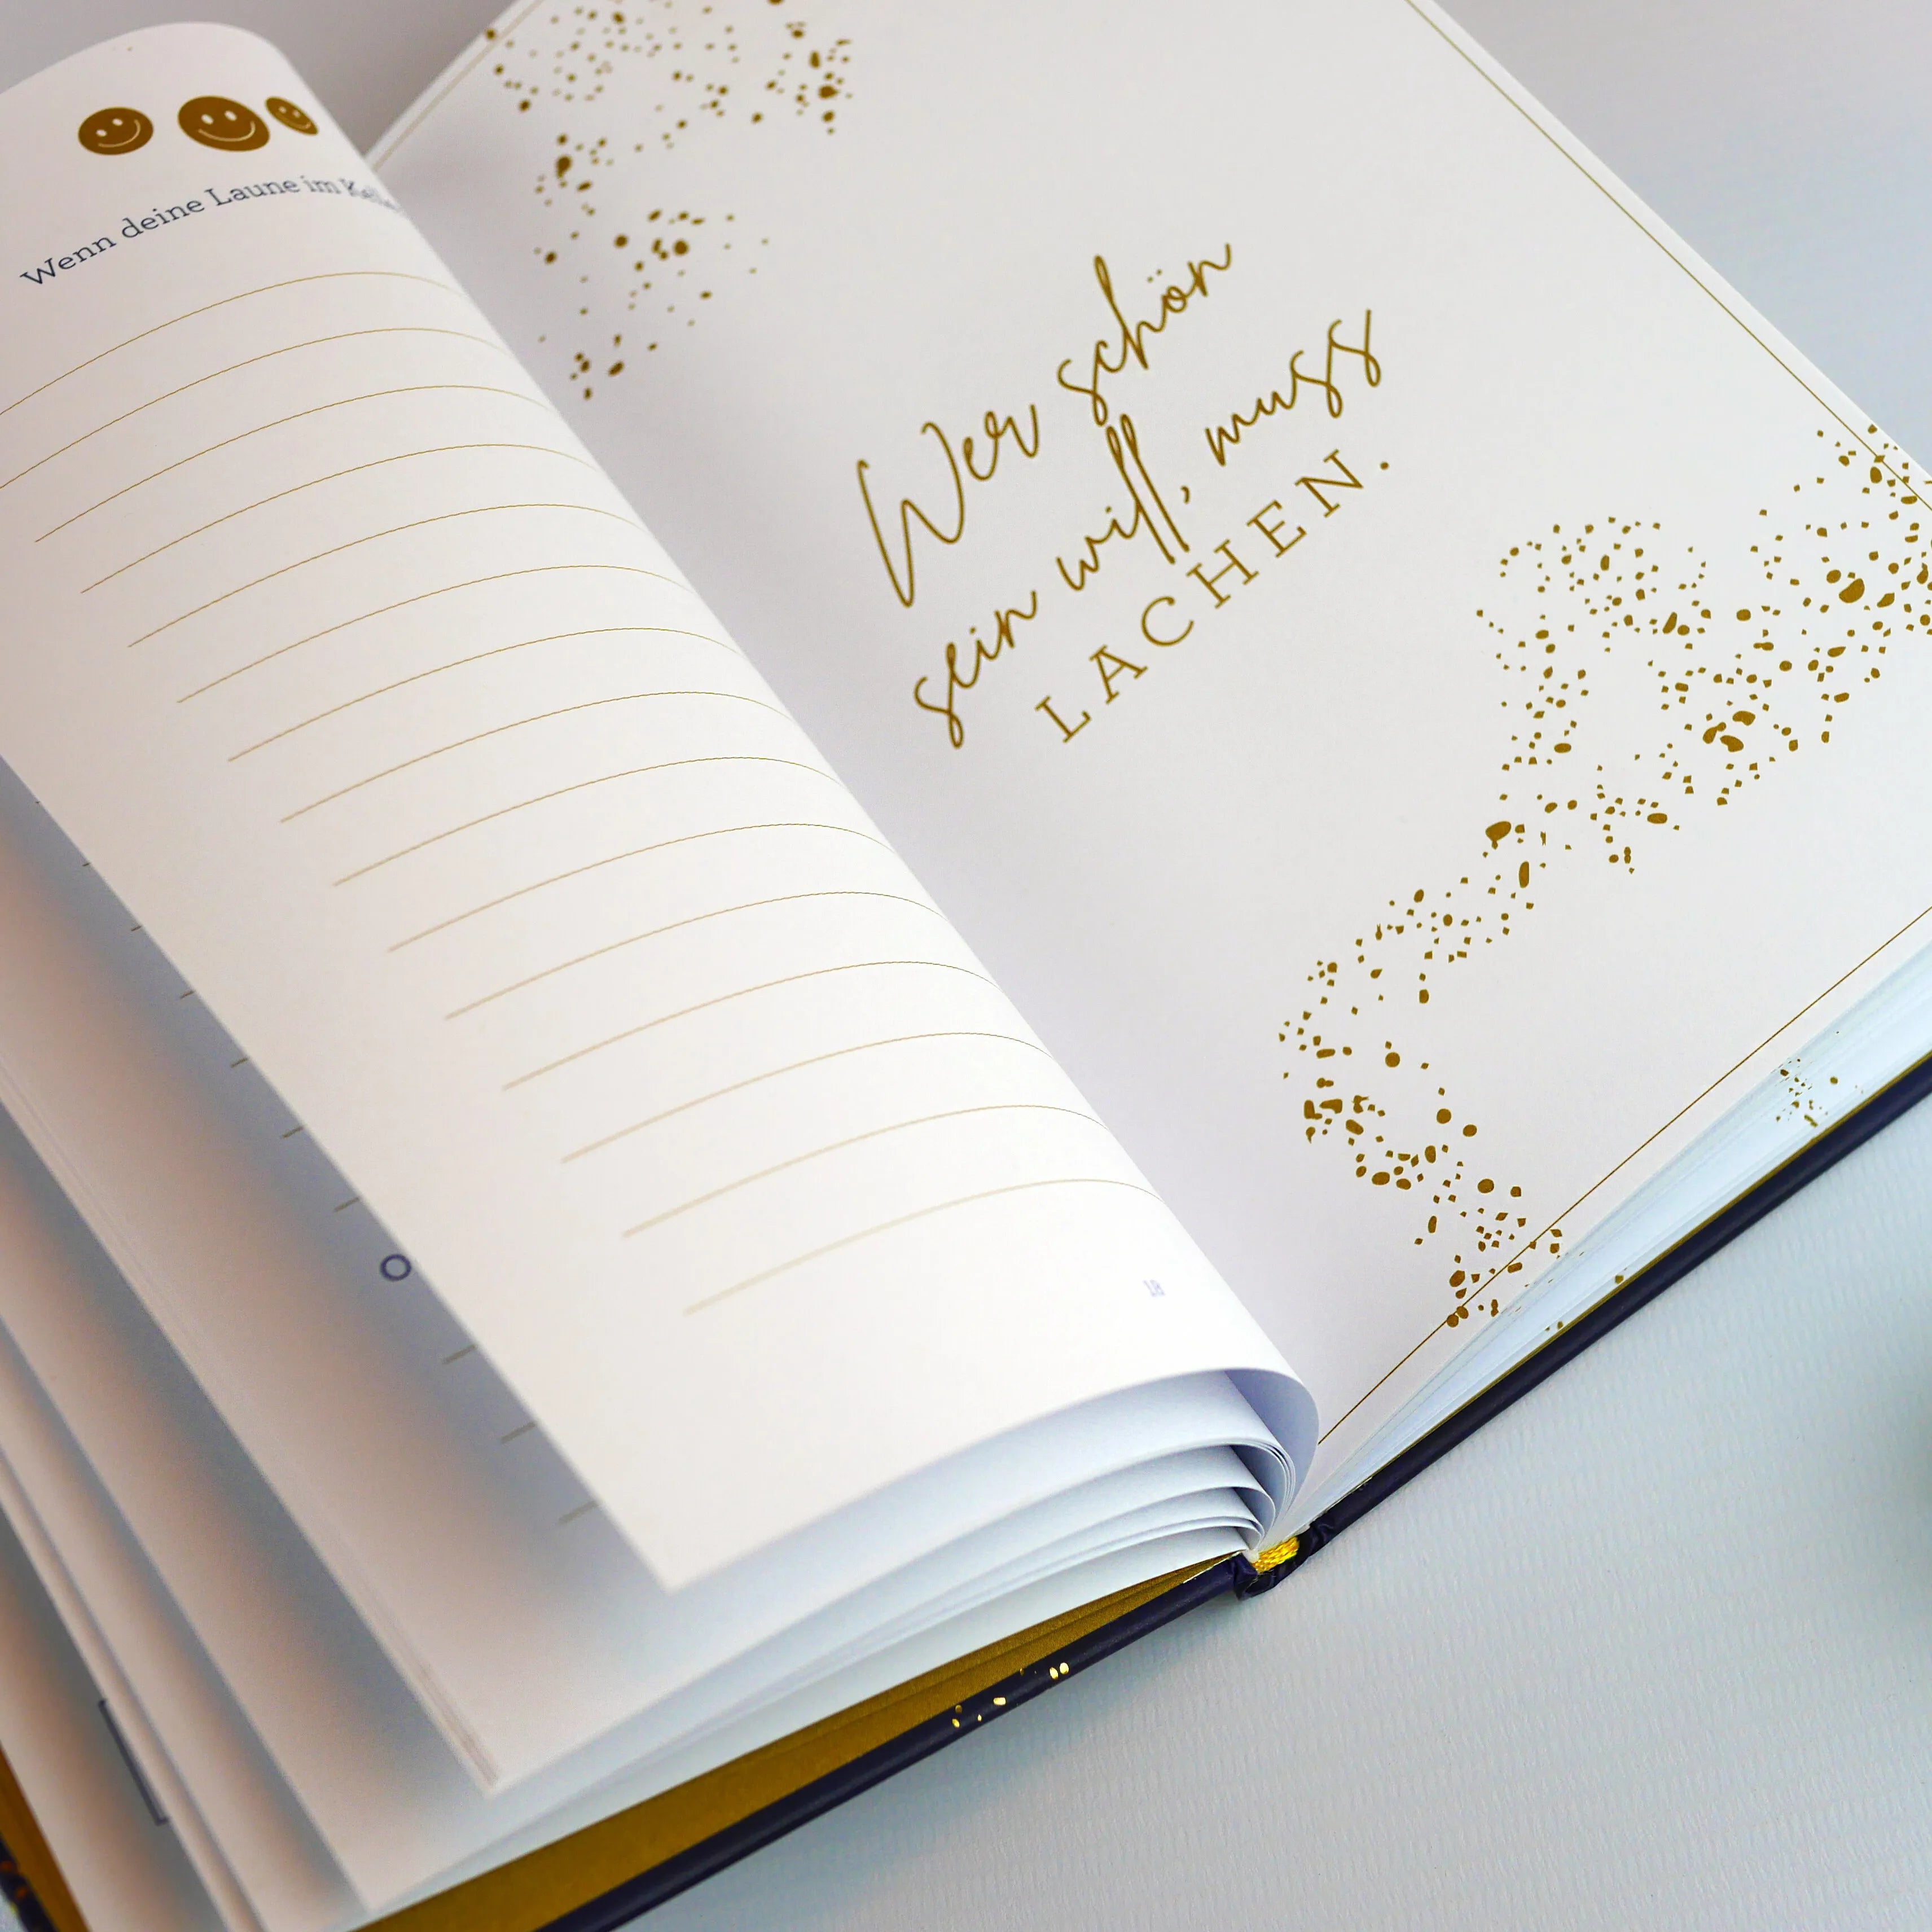 Wenn deine Laune im
Wer schön
sein will, muss
LACHEN.